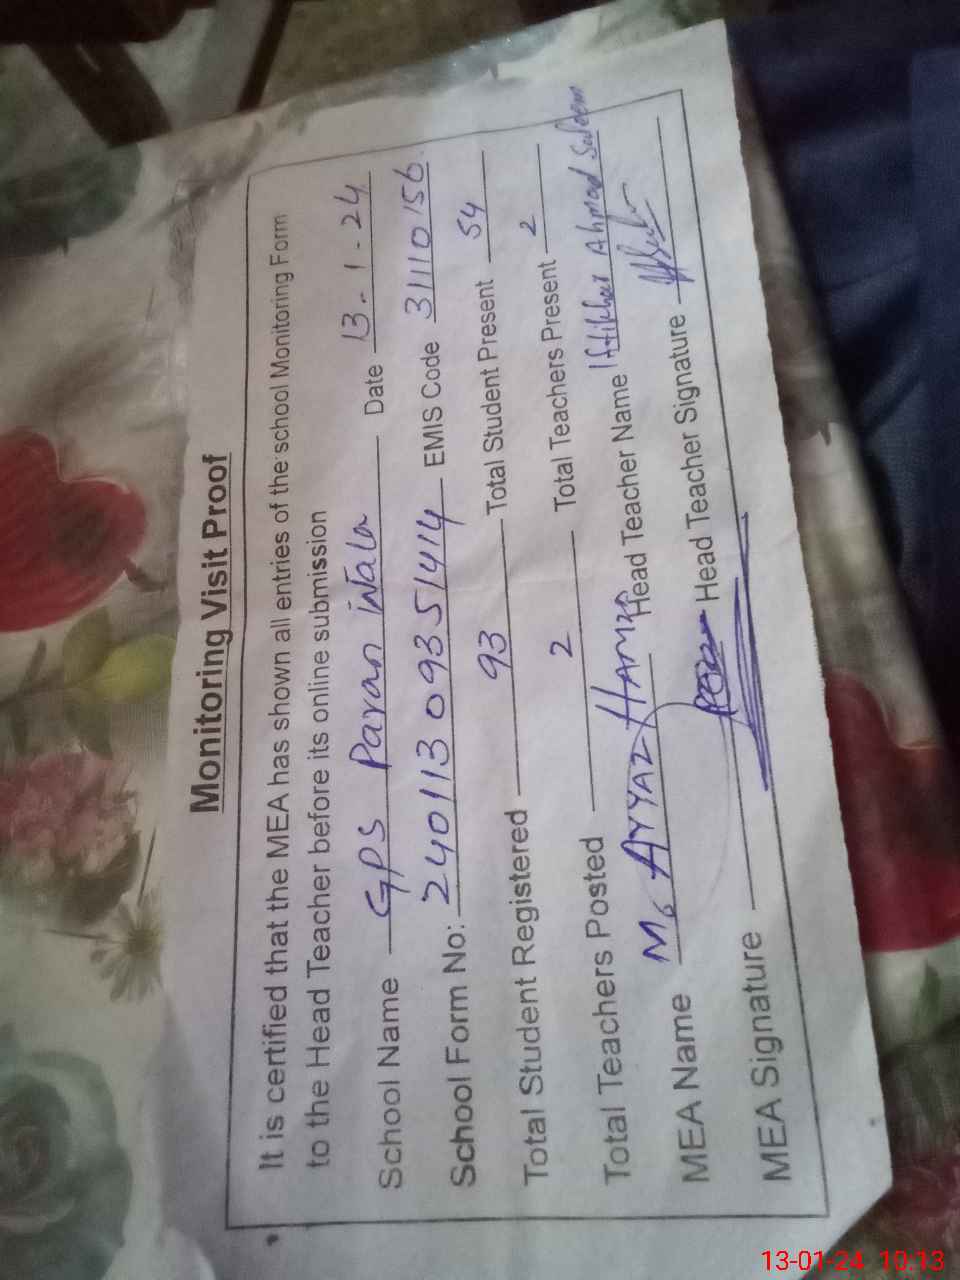 Monitoring Visit Proof
It is certified that the MEA has shown all entries of the school Monitoring Form
to the Head Teacher before its online submission
School Name GPS Paran Wala Date 13-1-24
School Form No: 24011309351414 EMIS Code 31110156
Total Student Registered 93 Total Student Present 54
Total Teachers Posted 2 Total Teachers Present 2
MEA Name M. AYYAZ HAMZA Head Teacher Name Iftikhar Ahmad Saleem
MEA Signature Head Teacher Signature
13-01-24 10:13